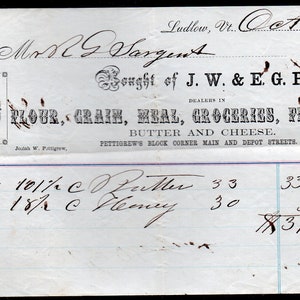 Ludlow, Vt. Oct
Mr R G Sargent
Bought of J. W. & E. G. P
DEALERS IN
FLOUR, GRAIN, MEAL, GROCERIES, F
BUTTER AND CHEESE.
Judah W. Pettigrew,
PETTIGREW'S BLOCK CORNER MAIN AND DEPOT STREETS.
101½ C Butter 33 33
18½ C Honey 30
$3